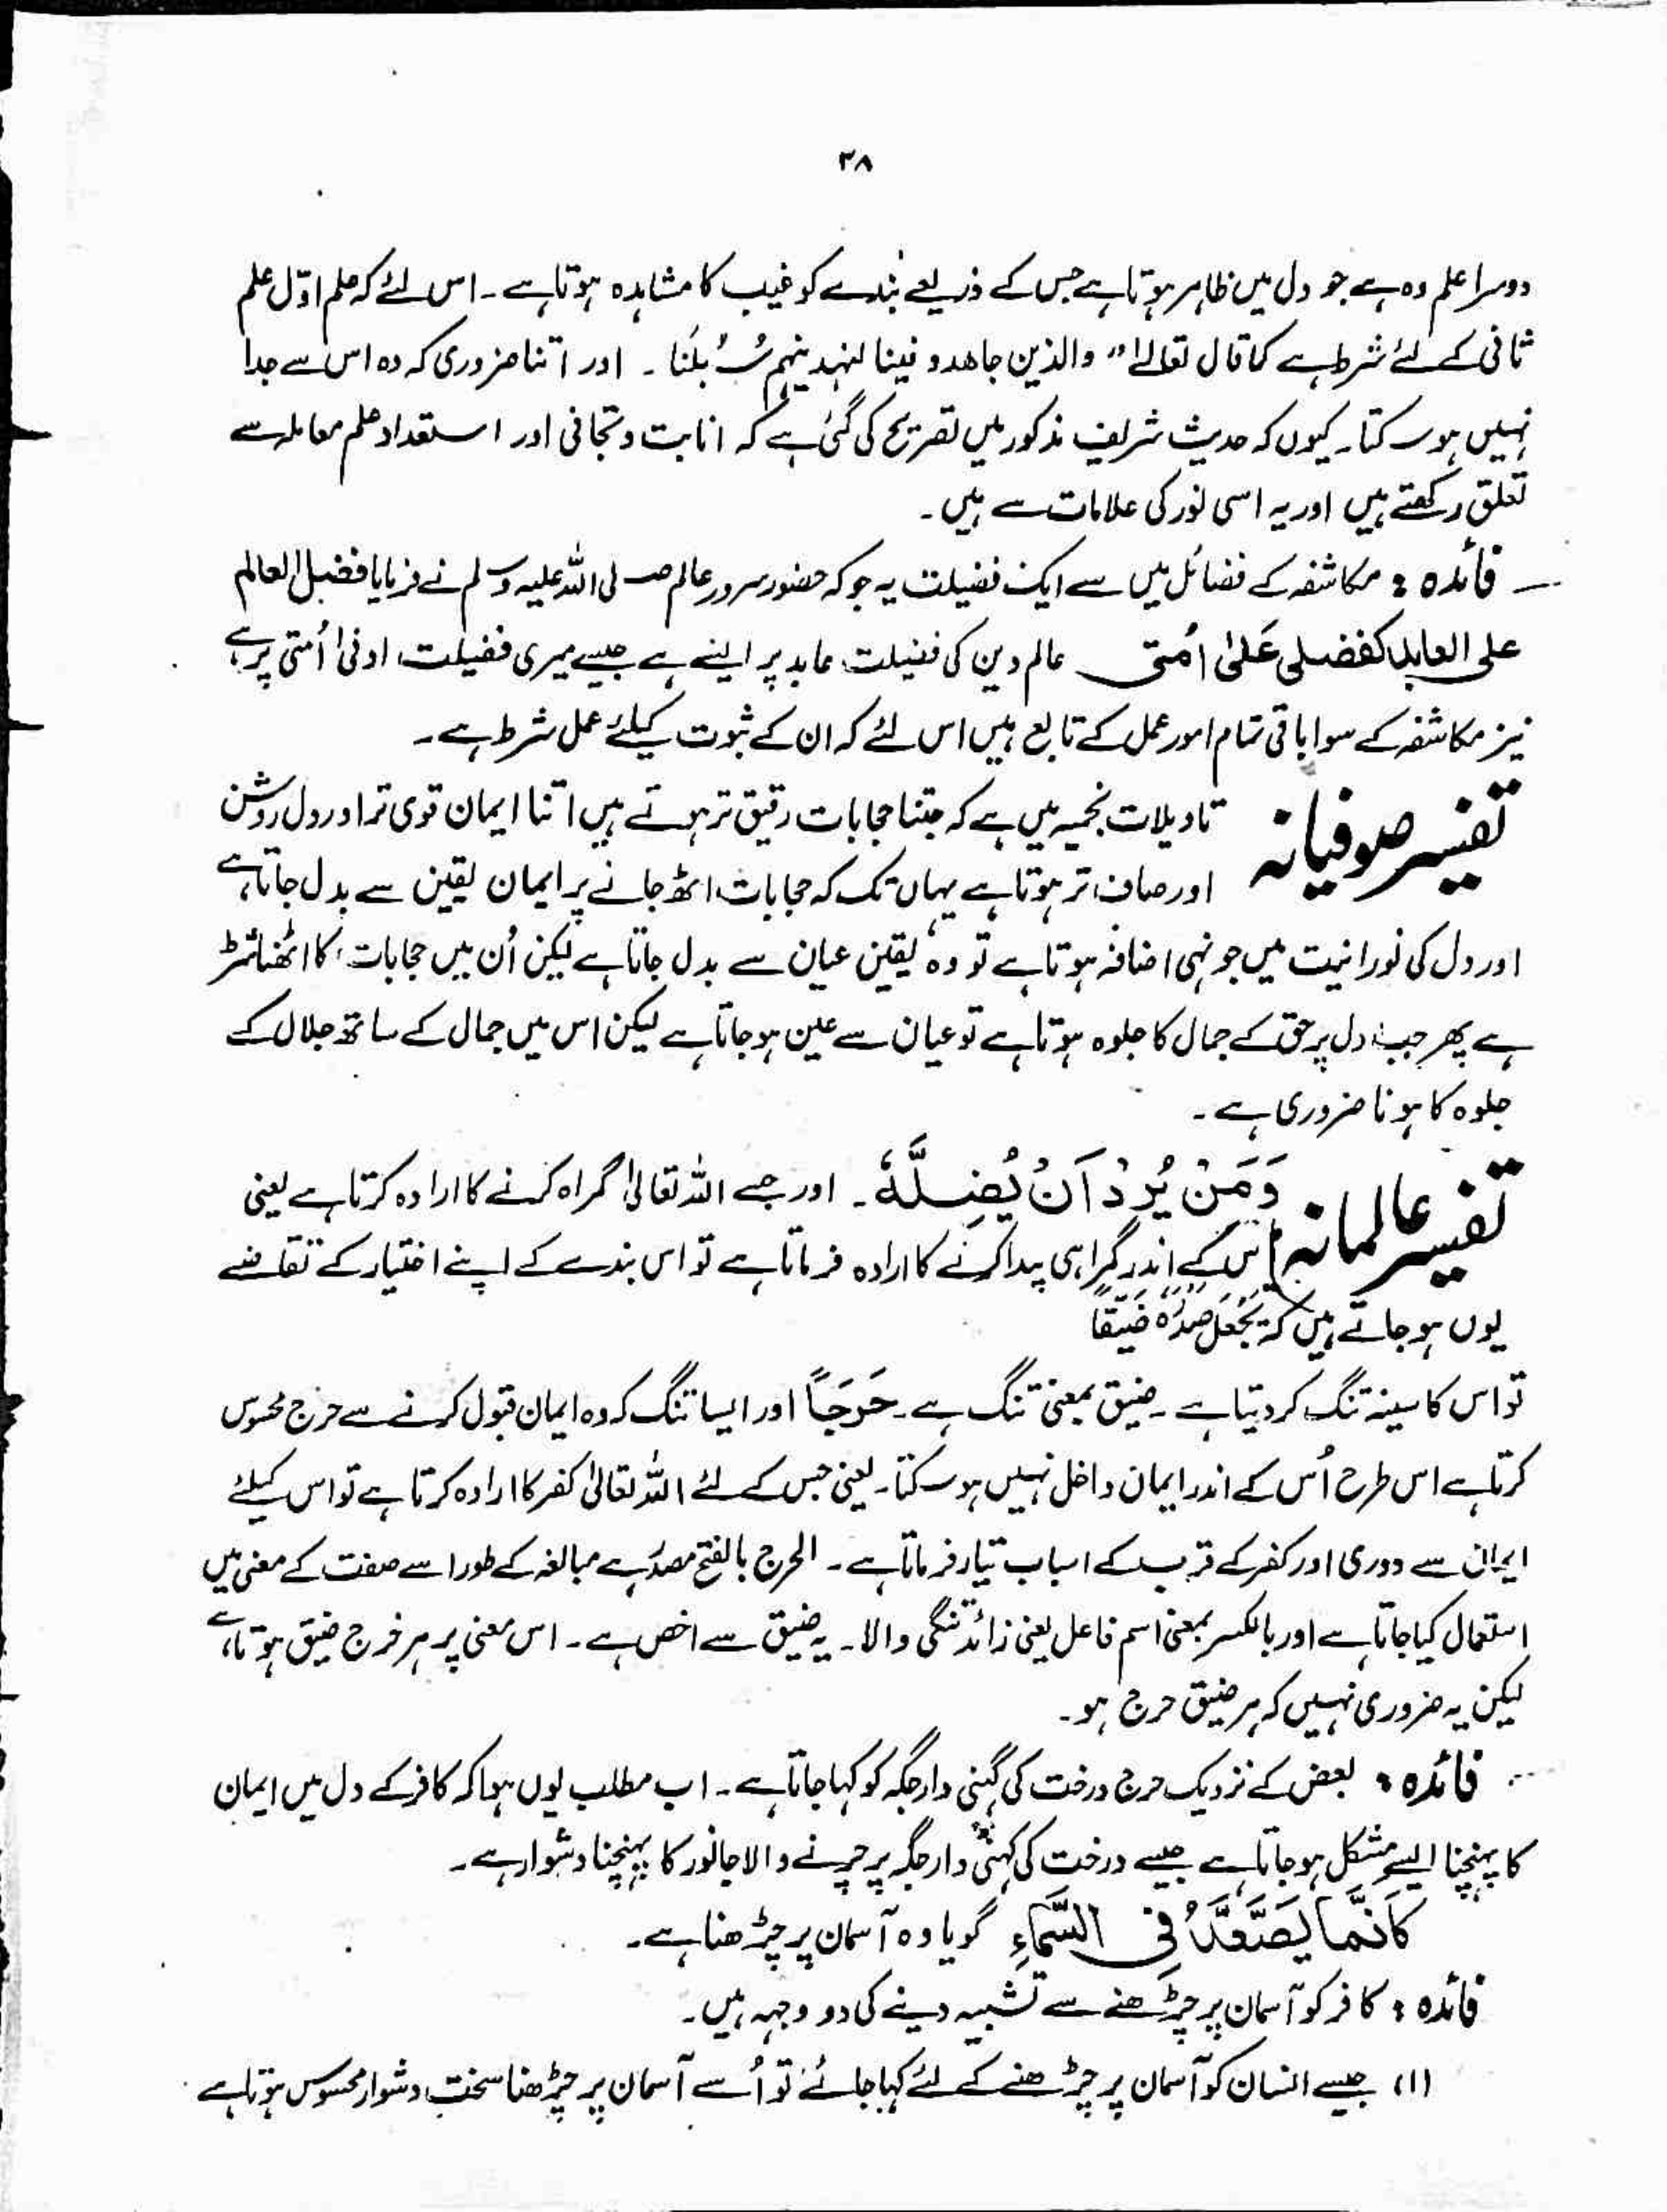 ۲۸
دوسرا علم وہ ہے جو دل میں ظاہر ہوتا ہے جس کے ذریعے بندے کو غیب کا مشاہدہ ہوتا ہے ۔ اس لئے کہ علم اوّل علم
ثانی کے لئے شرط ہے کما قال تعالےٰ " والذین جاھدو فینا لنہدینہم سُبُلَنا ۔ اور اتنا ضروری کہ وہ اس سے جدا
نہیں ہو سکتا ۔ کیوں کہ حدیث شریف مذکور میں تصریح کی گئی ہے کہ انابت و تجافی اور استعداد علم معاملہ سے
تعلق رکھتے ہیں اور یہ اسی نور کی علامات سے ہیں ۔
فائدہ : مکاشفہ کے فضائل میں سے ایک فضیلت یہ جو کہ حضور سرور عالم صلی اللہ علیہ وسلم نے فرمایا فضل العالم
علی العابد کفضلی عَلیٰ اُمتی عالم دین کی فضیلت عابد پر ایسے ہے جیسے میری فضیلت ادنیٰ اُمتی پر ہے
نیز مکاشفہ کے سوا باقی تمام امور عمل کے تابع ہیں اس لئے کہ ان کے ثبوت کیلئے عمل شرط ہے ۔
تفسیر صوفیانہ تاویلات نجمیہ میں ہے کہ جتنا حجابات رقیق تر ہوتے ہیں اتنا ایمان قوی تر اور دل روشن
اور صاف تر ہوتا ہے یہاں تک کہ حجابات اٹھ جانے پر ایمان یقین سے بدل جاتا ہے
اور دل کی نورانیت میں جونہی اضافہ ہوتا ہے تو وہ یقین عیان سے بدل جاتا ہے لیکن اُن میں حجابات کا اٹھنا شرط
ہے پھر جب دل پر حق کے جمال کا جلوہ ہوتا ہے تو عیان سے عین ہو جاتا ہے لیکن اس میں جمال کے ساتھ جلال کے
جلوہ کا ہونا ضروری ہے ۔
تفسیر عالمانہ وَمَنْ یُرِدْ اَنْ یُضِلَّہٗ ۔ اور جسے اللہ تعالیٰ گمراہ کرنے کا ارادہ کرتا ہے یعنی
اس کے اندر گمراہی پیدا کرنے کا ارادہ فرماتا ہے تو اس بندے کے اپنے اختیار کے تقاضے
یوں ہو جاتے ہیں کہ یَجْعَلْ صَدْرَہٗ ضَیِّقًا
تو اس کا سینہ تنگ کر دیتا ہے ۔ ضیق بمعنی تنگ ہے ۔ حَرَجًا اور ایسا تنگ کہ وہ ایمان قبول کرنے سے حرج محسوس
کرتا ہے اس طرح اُس کے اندر ایمان داخل نہیں ہو سکتا ۔ یعنی جس کے لئے اللہ تعالیٰ کفر کا ارادہ کرتا ہے تو اس کیلئے
ایمان سے دوری اور کفر کے قرب کے اسباب تیار فرماتا ہے ۔ الحرج بالفتح مصدر ہے مبالغہ کے طور اسے صفت کے معنی میں
استعمال کیا جاتا ہے اور بالکسر بمعنی اسم فاعل یعنی زائد تنگی والا ۔ یہ ضیق سے اخص ہے ۔ اس معنی پر ہر حرج ضیق ہوتا ہے
لیکن یہ ضروری نہیں کہ ہر ضیق حرج ہو ۔
فائدہ : بعض کے نزدیک حرج درخت کی گہنی دار جگہ کو کہا جاتا ہے ۔ اب مطلب یوں ہوا کہ کافر کے دل میں ایمان
کا پہنچنا ایسے مشکل ہو جاتا ہے جیسے درخت کی گہنی دار جگہ پر چرنے والا جانور کا پہنچنا دشوار ہے ۔
کَاَنَّمَا یَصَّعَّدُ فِی السَّمَاءِ گویا وہ آسمان پر چڑھنا ہے ۔
فائدہ : کافر کو آسمان پر چڑھنے سے تشبیہ دینے کی دو وجہہ ہیں ۔
(۱) جیسے انسان کو آسمان پر چڑھنے کے لئے کہا جائے تو اُسے آسمان پر چڑھنا سخت دشوار محسوس ہوتا ہے